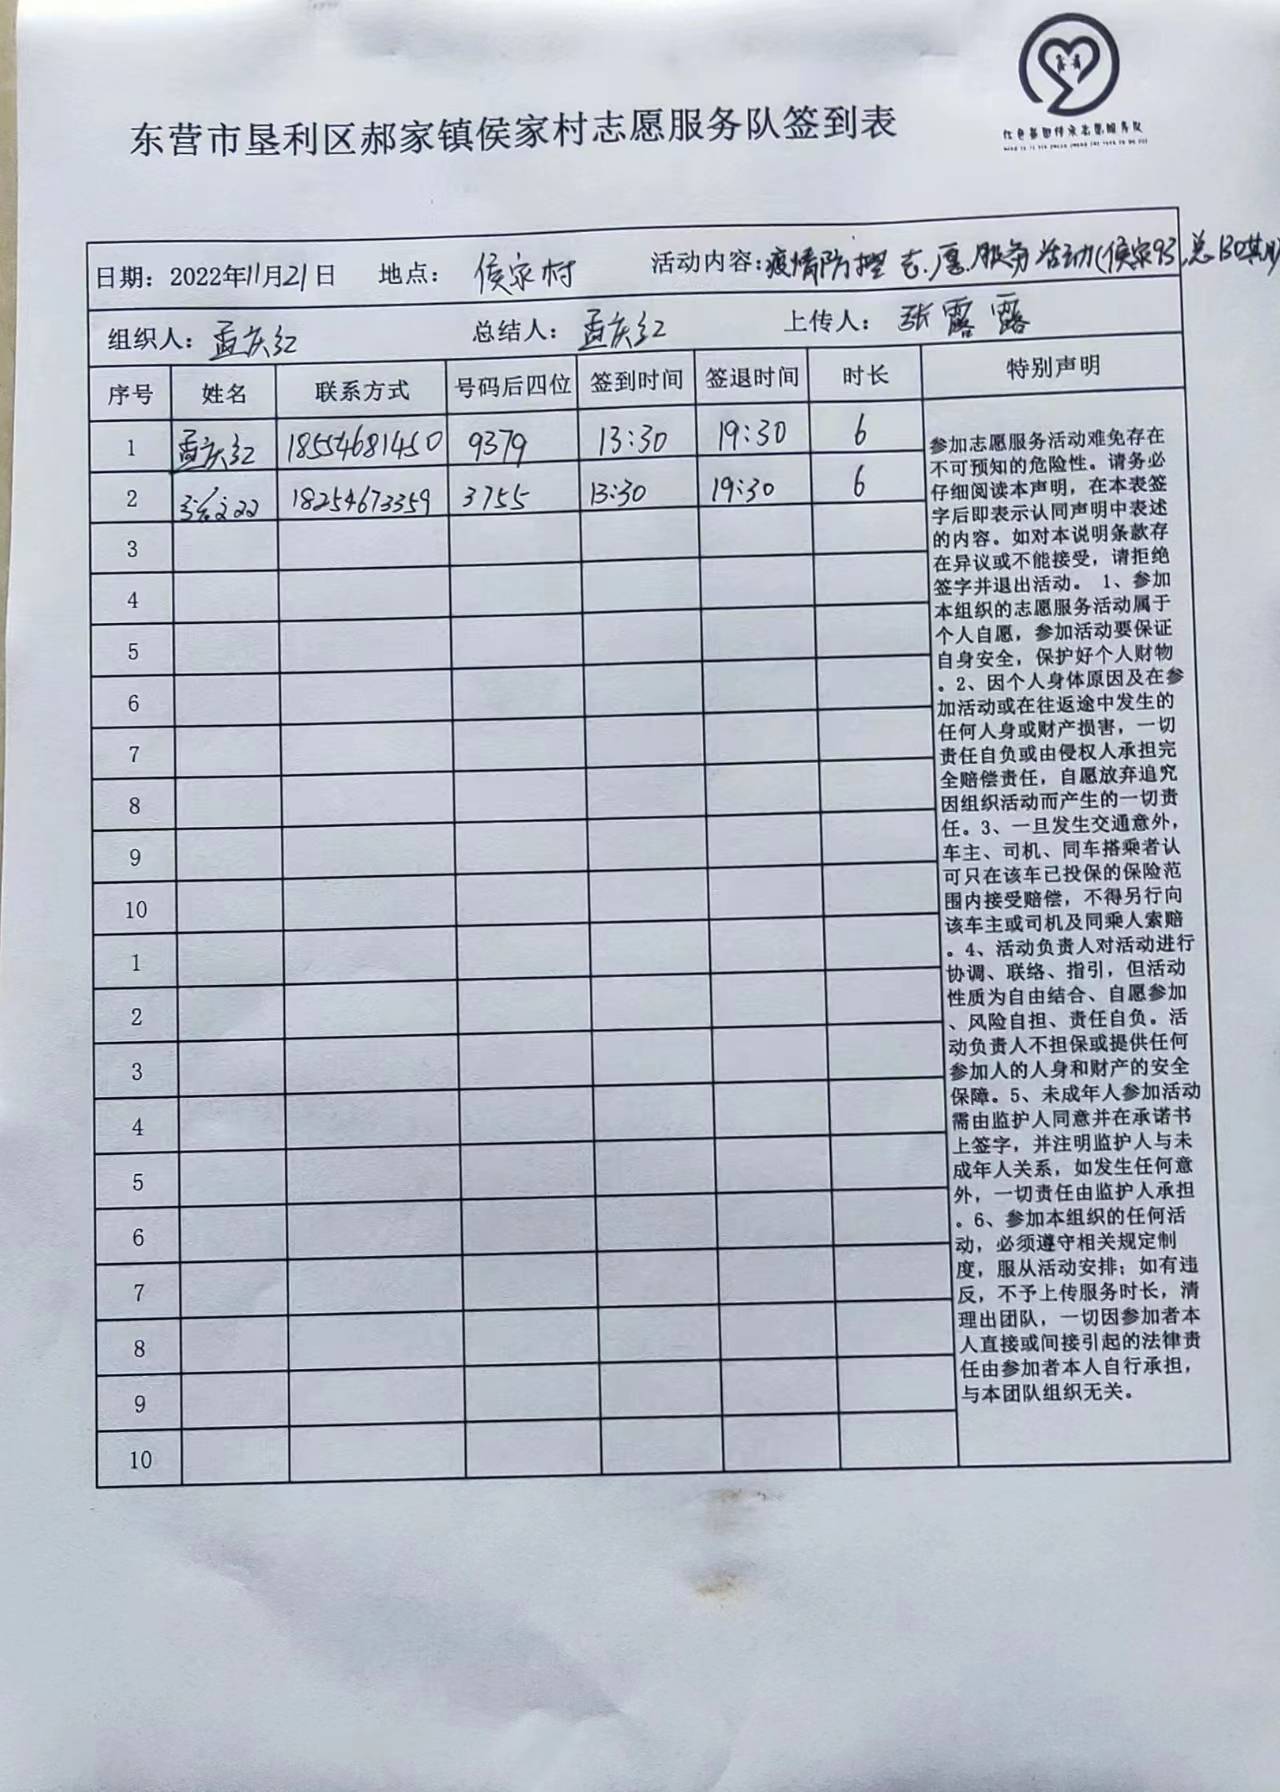 东营市垦利区郝家镇侯家村志愿服务队签到表
日期：2022年11月21日 地点： 侯家村 活动内容：疫情防控志愿服务活动(侯家93,总130期
组织人：孟庆红 总结人：孟庆红 上传人：张露露
序号 姓名 联系方式 号码后四位 签到时间 签退时间 时长 特别声明
1 孟庆红 18554681450 9379 13:30 19:30 6
2 18254673359 3755 13:30 19:30 6
3
4
5
6
7
8
9
10
1
2
3
4
5
6
7
8
9
10
参加志愿服务活动难免存在
不可预知的危险性。请务必
仔细阅读本声明，在本表签
字后即表示认同声明中表述
的内容。如对本说明条款存
在异议或不能接受，请拒绝
签字并退出活动。 1、参加
本组织的志愿服务活动属于
个人自愿，参加活动要保证
自身安全，保护好个人财物
。2、因个人身体原因及在参
加活动或在往返途中发生的
任何人身或财产损害，一切
责任自负或由侵权人承担完
全赔偿责任，自愿放弃追究
因组织活动而产生的一切责
任。3、一旦发生交通意外，
车主、司机、同车搭乘者认
可只在该车已投保的保险范
围内接受赔偿，不得另行向
该车主或司机及同乘人索赔
。4、活动负责人对活动进行
协调、联络、指引，但活动
性质为自由结合、自愿参加
、风险自担、责任自负。活
动负责人不担保或提供任何
参加人的人身和财产的安全
保障。5、未成年人参加活动
需由监护人同意并在承诺书
上签字，并注明监护人与未
成年人关系，如发生任何意
外，一切责任由监护人承担
。6、参加本组织的任何活
动，必须遵守相关规定制
度，服从活动安排；如有违
反，不予上传服务时长，清
理出团队，一切因参加者本
人直接或间接引起的法律责
任由参加者本人自行承担，
与本团队组织无关。